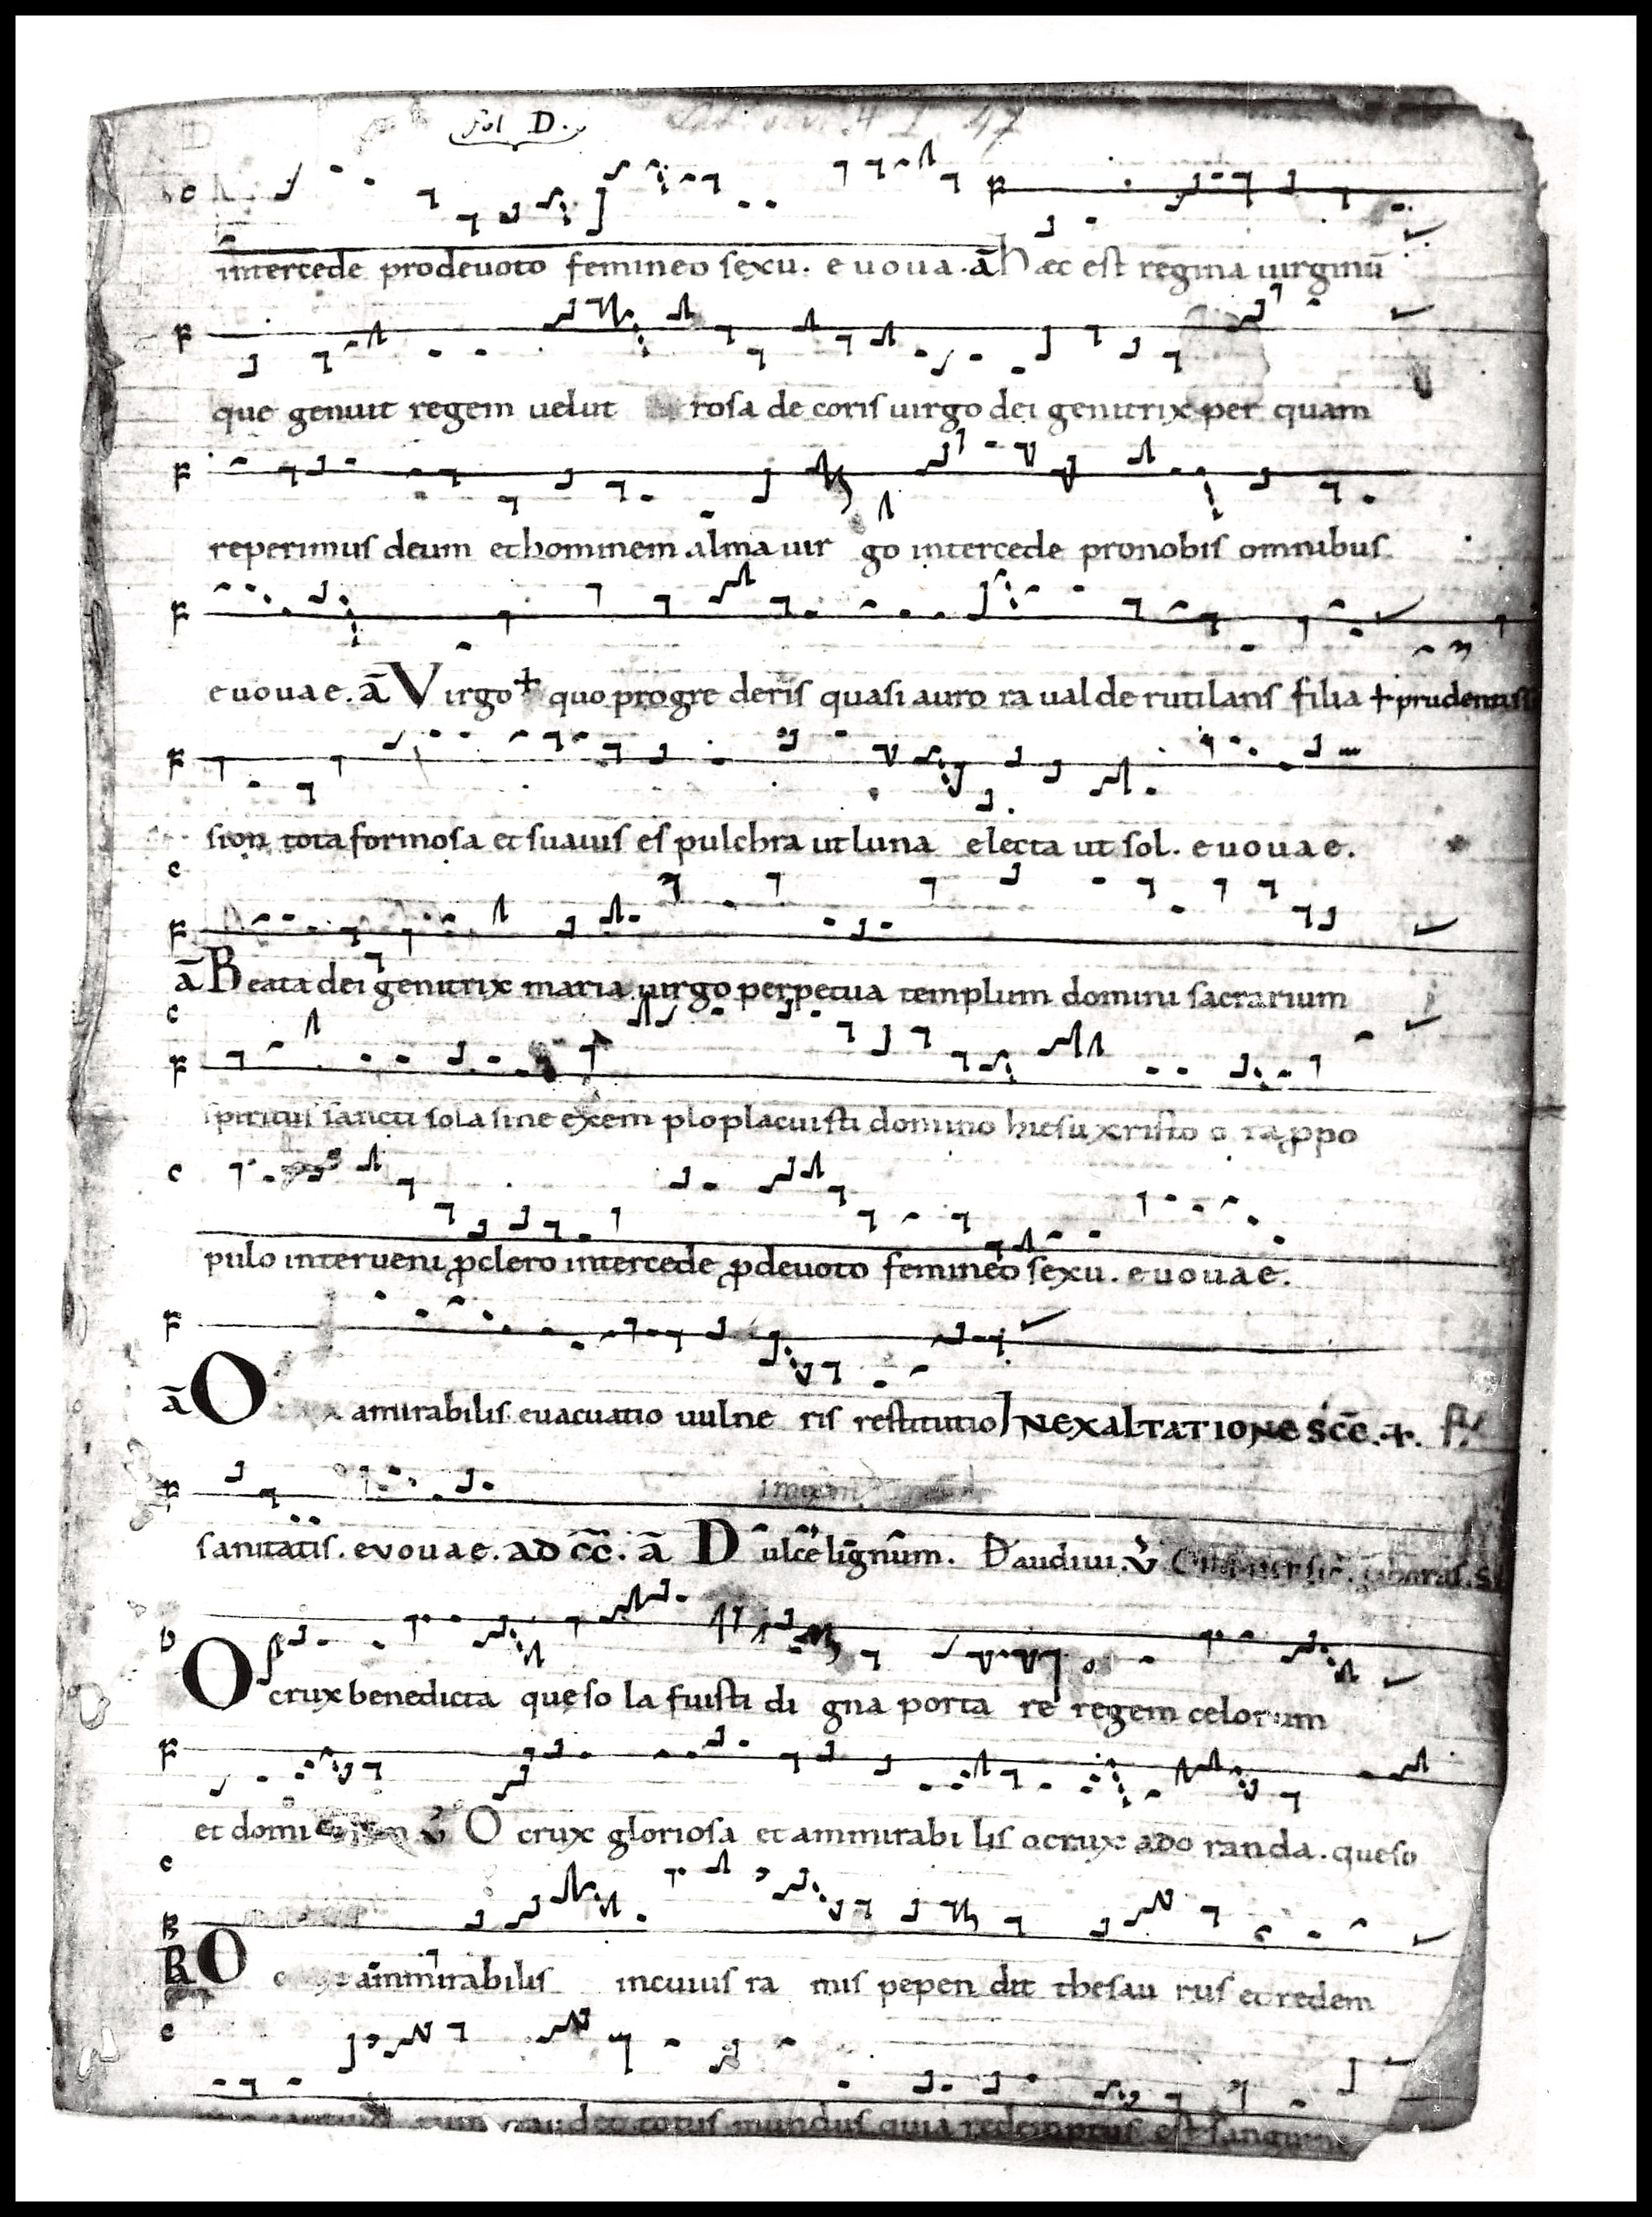 fol D.
intercede prodeuoto femineo sexu. e uoua. ā hæc est regina uirginū
que genuit regem uelut rosa de coris uirgo dei genitrix per quam
reperimus deum et hominem alma uir go intercede pronobis omnibus
euouae. ā Virgo + quo progre deris quasi auro ra ual de rutilans filia + prudentissi
sion tota formosa et suauis es pulchra ut luna electa ut sol. euouae.
ā Beata dei genitrix maria uirgo perpetua templum domini sacrarium
spiritus sancti sola sine exem plo placuisti domino hiesu xristo o ra ꝓ po
pulo interueni ꝓ clero intercede ꝓ deuoto femineo sexu. euouae.
ā O amirabilis euacuatio uulne ris restitutio IN EXALTATIONE SCĒ. +.
sanitatis. evouae. AD CC. ā D ulce lignum. D audiui. V
O crux benedicta que so la fuisti di gna porta re regem celorum
et domi V O crux gloriosa et ammirabi lis o crux ado randa. que so
R O ammirabilis incuius ra mis pepen dit thesau rus et redem
gaudet totus mundus quia redemptus est sanguine